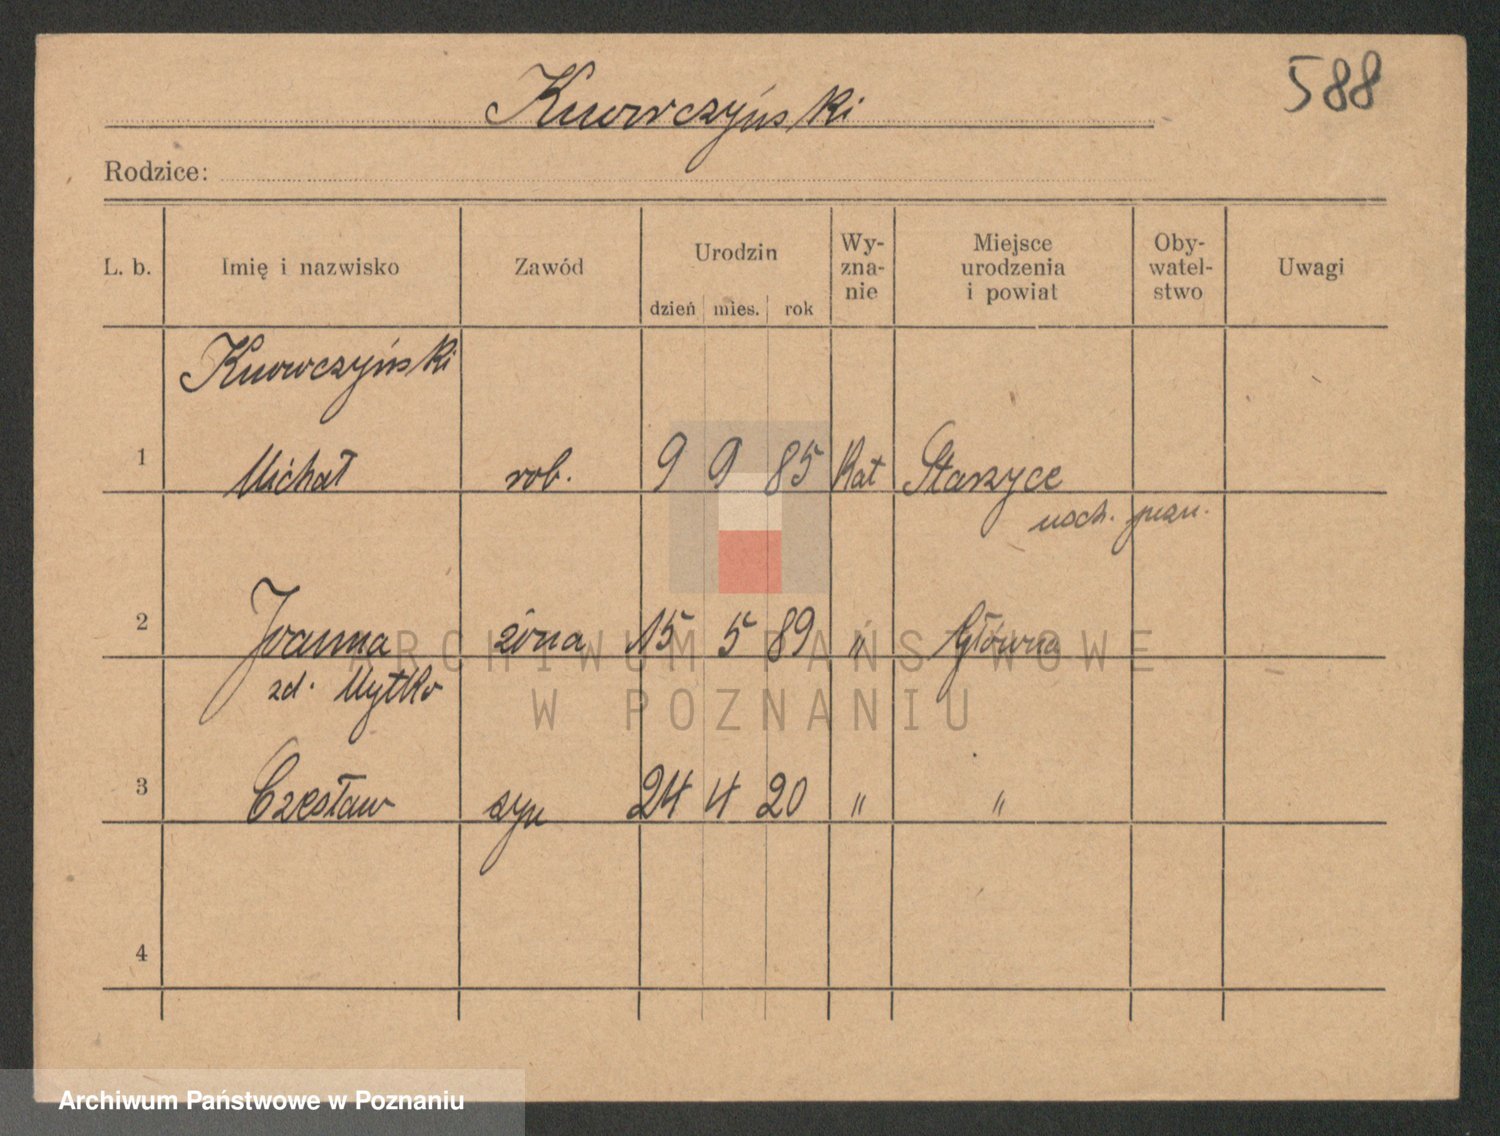 588
Knowczyński
Rodzice:
L. b. Imię i nazwisko Zawód Urodzin dzień mies. rok Wy-zna-nie Miejsce urodzenia i powiat Oby-watel-stwo Uwagi
Knowczyński
1 Michał rob. 9 9 85 Kat
wsch. pozn.
2 Joanna żona 15 5 89 " Główna
zd. Mytko
3 Czesław syn 24 4 20 " "
4
ARCHIWUM PAŃSTWOWE
W POZNANIU
Archiwum Państwowe w Poznaniu